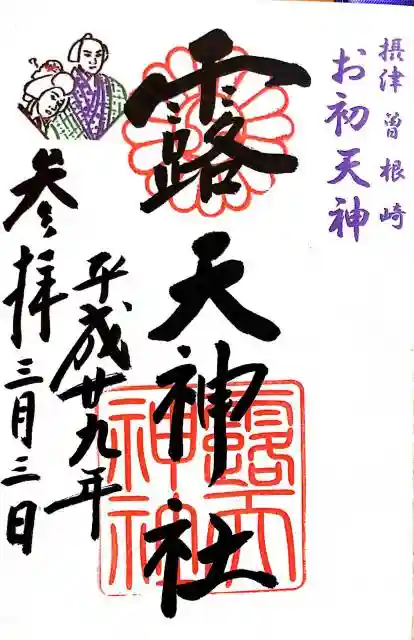 摂津 曽根崎
お初天神
露天神社
平成廿九年
参拝 三月三日
露天
神社